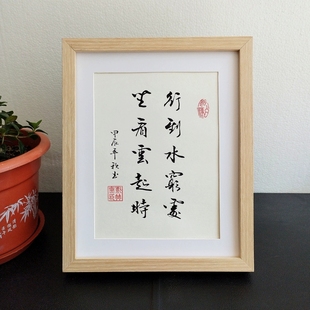 行到水窮處
坐看雲起時
甲辰年秋書